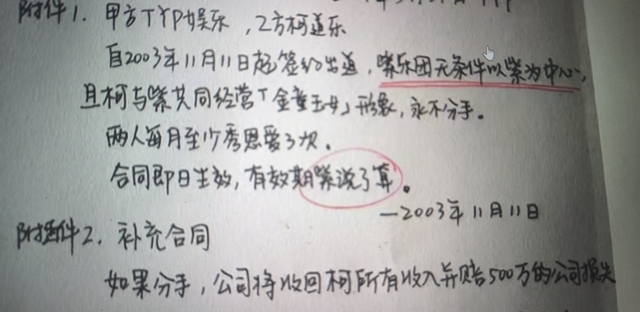 附件1. 甲方TYP娱乐，乙方柯道乐
自2003年11月11日起签约出道，紫乐团无条件以紫为中心，
且柯与紫共同经营「金童玉女」形象，永不分手。
两人每月至少秀恩爱3次。
合同即日生效，有效期紫说了算。
—2003年11月11日
附件2. 补充合同
如果分手，公司将收回柯所有收入并赔500万的公司损失